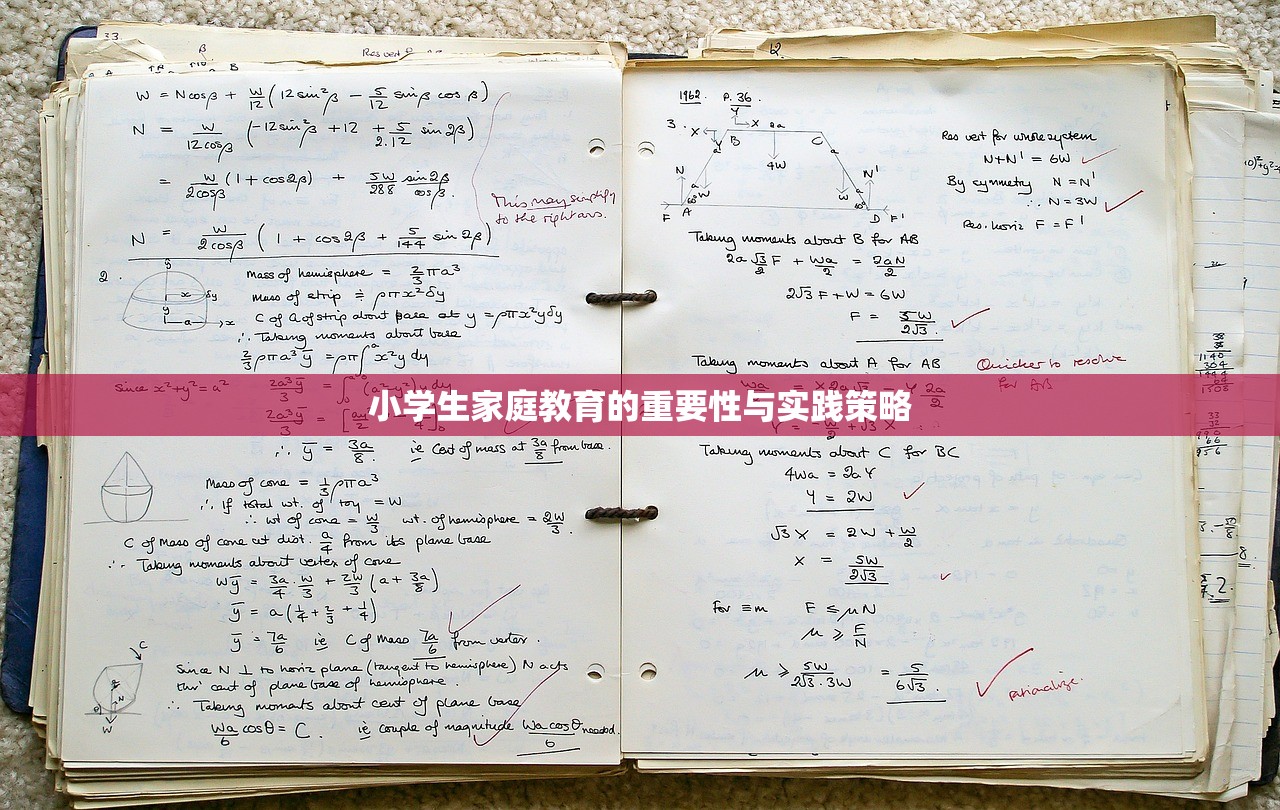 33.
β
Res vert
W = N cos β + W/12 (12 sin²β − 5/12 sin β cos β)
N = W/12cosβ (−12 sin²β + 12 + 5/2.12 sin 2β)
= W/2cosβ (1 + cos 2β) + 5W/288 sin 2β/cos β.
This may simplify
to the right ans.
N = W/2cosβ (1 + cos 2β + 5/144 sin 2β)
2.
Mass of hemisphere = 2/3 πa³
Mass of strip ≑ ρπx²δy
C of G of strip about base at y = ρπx²yδy
∴ Taking moments about base
2/3 ρπa³ȳ = ρπ∫x²y dy
since x²+y² = a²
2a³ȳ/3 = ∫₀ (a²−y²)y dy
小学生家庭教育的重要性与实践策略
∴ ȳ = 3a/8. ie Cent of mass at 3a/8 from base.
Mass of cone = 1/3 ρπa³
∴ If total wt. of toy = W
∴ wt of cone = W/3 wt. of hemisphere = 2W/3.
C of Mass of cone at dist. a/4 from its plane base
∴ Taking moments about vertex of cone
Wȳ = 3a/4 · W/3 + 2W/3 (a + 3a/8)
ȳ = a(1/4 + 2/3 + 1/4)
ȳ = 7a/6 ie C of Mass 7a/6 from vertex.
Since N ⊥ to horiz plane (tangent to hemisphere) N acts
thro' cent of plane base of hemisphere.
∴ Taking moments about cent of plane base
Wa/6 cosθ = C. ie couple of magnitude Wa cosθ/6 needed.
12.
1962. P. 36.
3.
X Y X 2a
B C
4W
N N'
W W
60° 60°
F A D F'
Res vert for whole system
N+N' = 6W
By symmetry N = N'
∴ N = 3W
Res. horiz F = F'
Taking moments about B for AB
2a √3/2 F + Wa/2 = 2aN/2
2√3 F + W = 6W
F = 5W/2√3.
Taking moments about A for AB
Quicker to resolve
for AB
Taking moments about C for BC
4Wa = 2aY
Y = 2W
√3 X = 2W + W/2
X = 5W/2√3
For ≡m F ≤ μN
μ ≥ F/N
μ ≥ 5W/2√3.3W = 5/6√3.
rationalize.